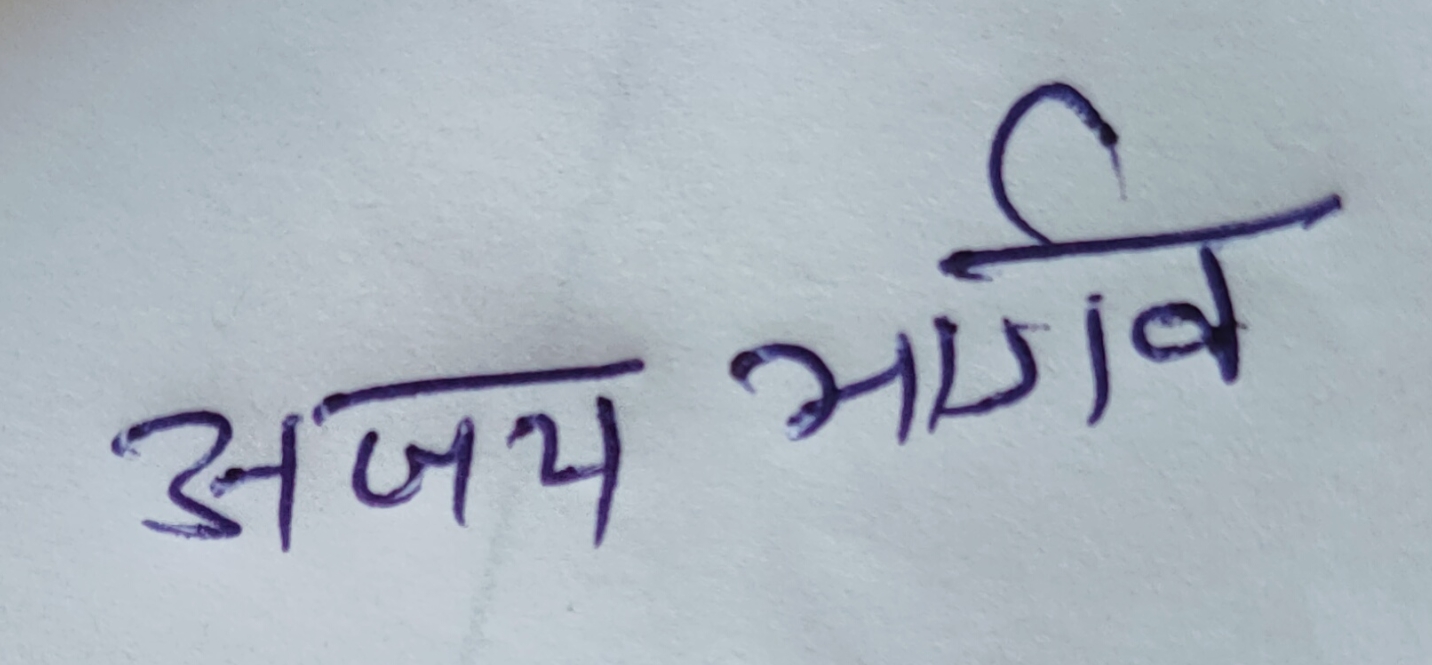 अजय भार्गव